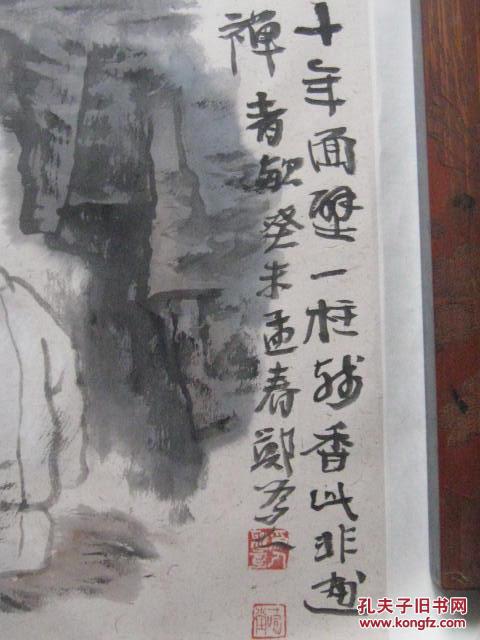 十年面壁一柱残香此非画
禅者歟癸未孟春鄭
孔夫子旧书网
KONGFZ.COM